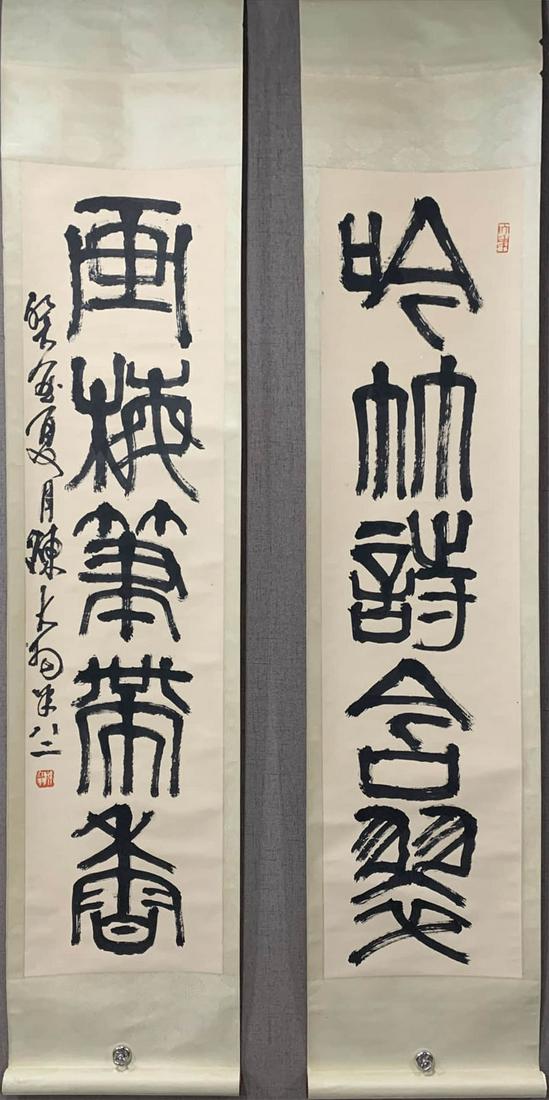 吟竹詩含翠
画梅筆帶香
癸酉夏月陳大羽年八二